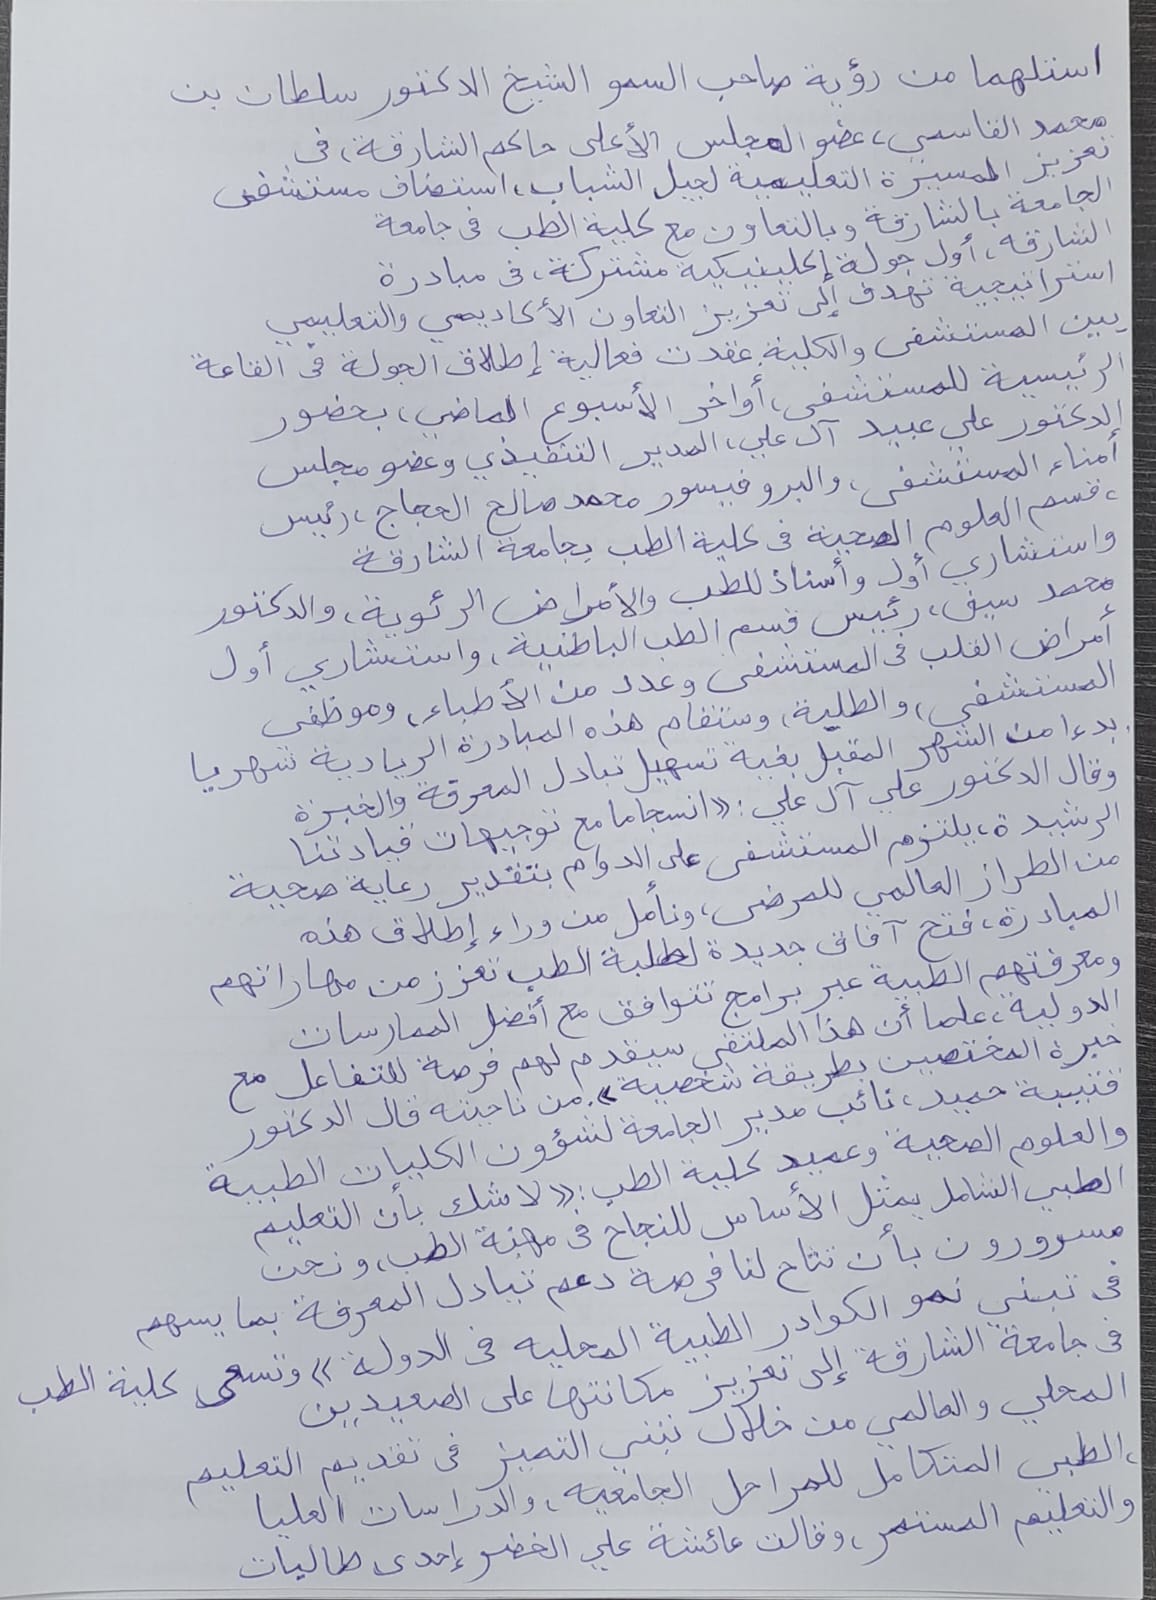 استلهما من رؤية صاحب السمو الشيخ الدكتور سلطان بن
محمد القاسمي، عضو المجلس الأعلى حاكم الشارقة، في
تعزيز المسيرة التعليمية لجيل الشباب، استضاف مستشفى
الجامعة بالشارقة وبالتعاون مع كلية الطب في جامعة
الشارقه، أول جولة إكلينيكية مشتركة، في مبادرة
استراتيجية تهدف إلى تعزيز التعاون الأكاديمي والتعليمي
بين المستشفى والكلية. عقدت فعالية إطلاق الجولة في القاعة
الرئيسية للمستشفى، أواخر الأسبوع الماضي، بحضور
الدكتور علي عبيد آل علي، المدير التنفيذي وعضو مجلس
أمناء المستشفى، والبروفيسور محمد صالح الحجاج، رئيس
، قسم العلوم الصحية في كلية الطب بجامعة الشارقة
واستشاري أول وأستاذ للطب والأمراض الرئوية، والدكتور
محمد سيف، رئيس قسم الطب الباطنية، واستشاري أول
أمراض القلب في المستشفى وعدد من الأطباء، وموظفي
المستشفى، والطلبة، وستقام هذه المبادرة الريادية شهريا
. بدءا من الشهر المقبل بغية تسهيل تبادل المعرفة والخبرة
وقال الدكتور علي آل علي: «انسجاما مع توجيهات قيادتنا
الرشيدة، يلتزم المستشفى على الدوام بتقدير رعاية صحية
من الطراز العالمي للمرضى، ونأمل من وراء إطلاق هذه
المبادرة، فتح آفاق جديدة لطلبة الطب تعزز من مهاراتهم
ومعرفتهم الطبية عبر برامج تتوافق مع أفضل الممارسات
الدولية، علما أن هذا الملتقي سيقدم لهم فرصة للتفاعل مع
خبرة المختصين بطريقة شخصية». من ناحيته قال الدكتور
قتيبة حميد، نائب مدير الجامعة لشؤون الكليات الطبية
والعلوم الصحية وعميد كلية الطب: «لا شك بأن التعليم
الطبي الشامل يمثل الأساس للنجاح في مهنة الطب، ونحن
مسرورون بأن تتاح لنا فرصة دعم تبادل المعرفة بما يسهم
في تبني نمو الكوادر الطبية المحليه في الدولة» وتسعى كلية الطب
في جامعة الشارقة إلى تعزيز مكانتها على الصعيدين
المحلي والعالمي من خلال تبني التميز في تقديم التعليم
، الطبي المتكامل للمراحل الجامعيه، والدراسات العليا
والتعليم المستمر، وقالت عائشة علي الخضر إحدى طالبات